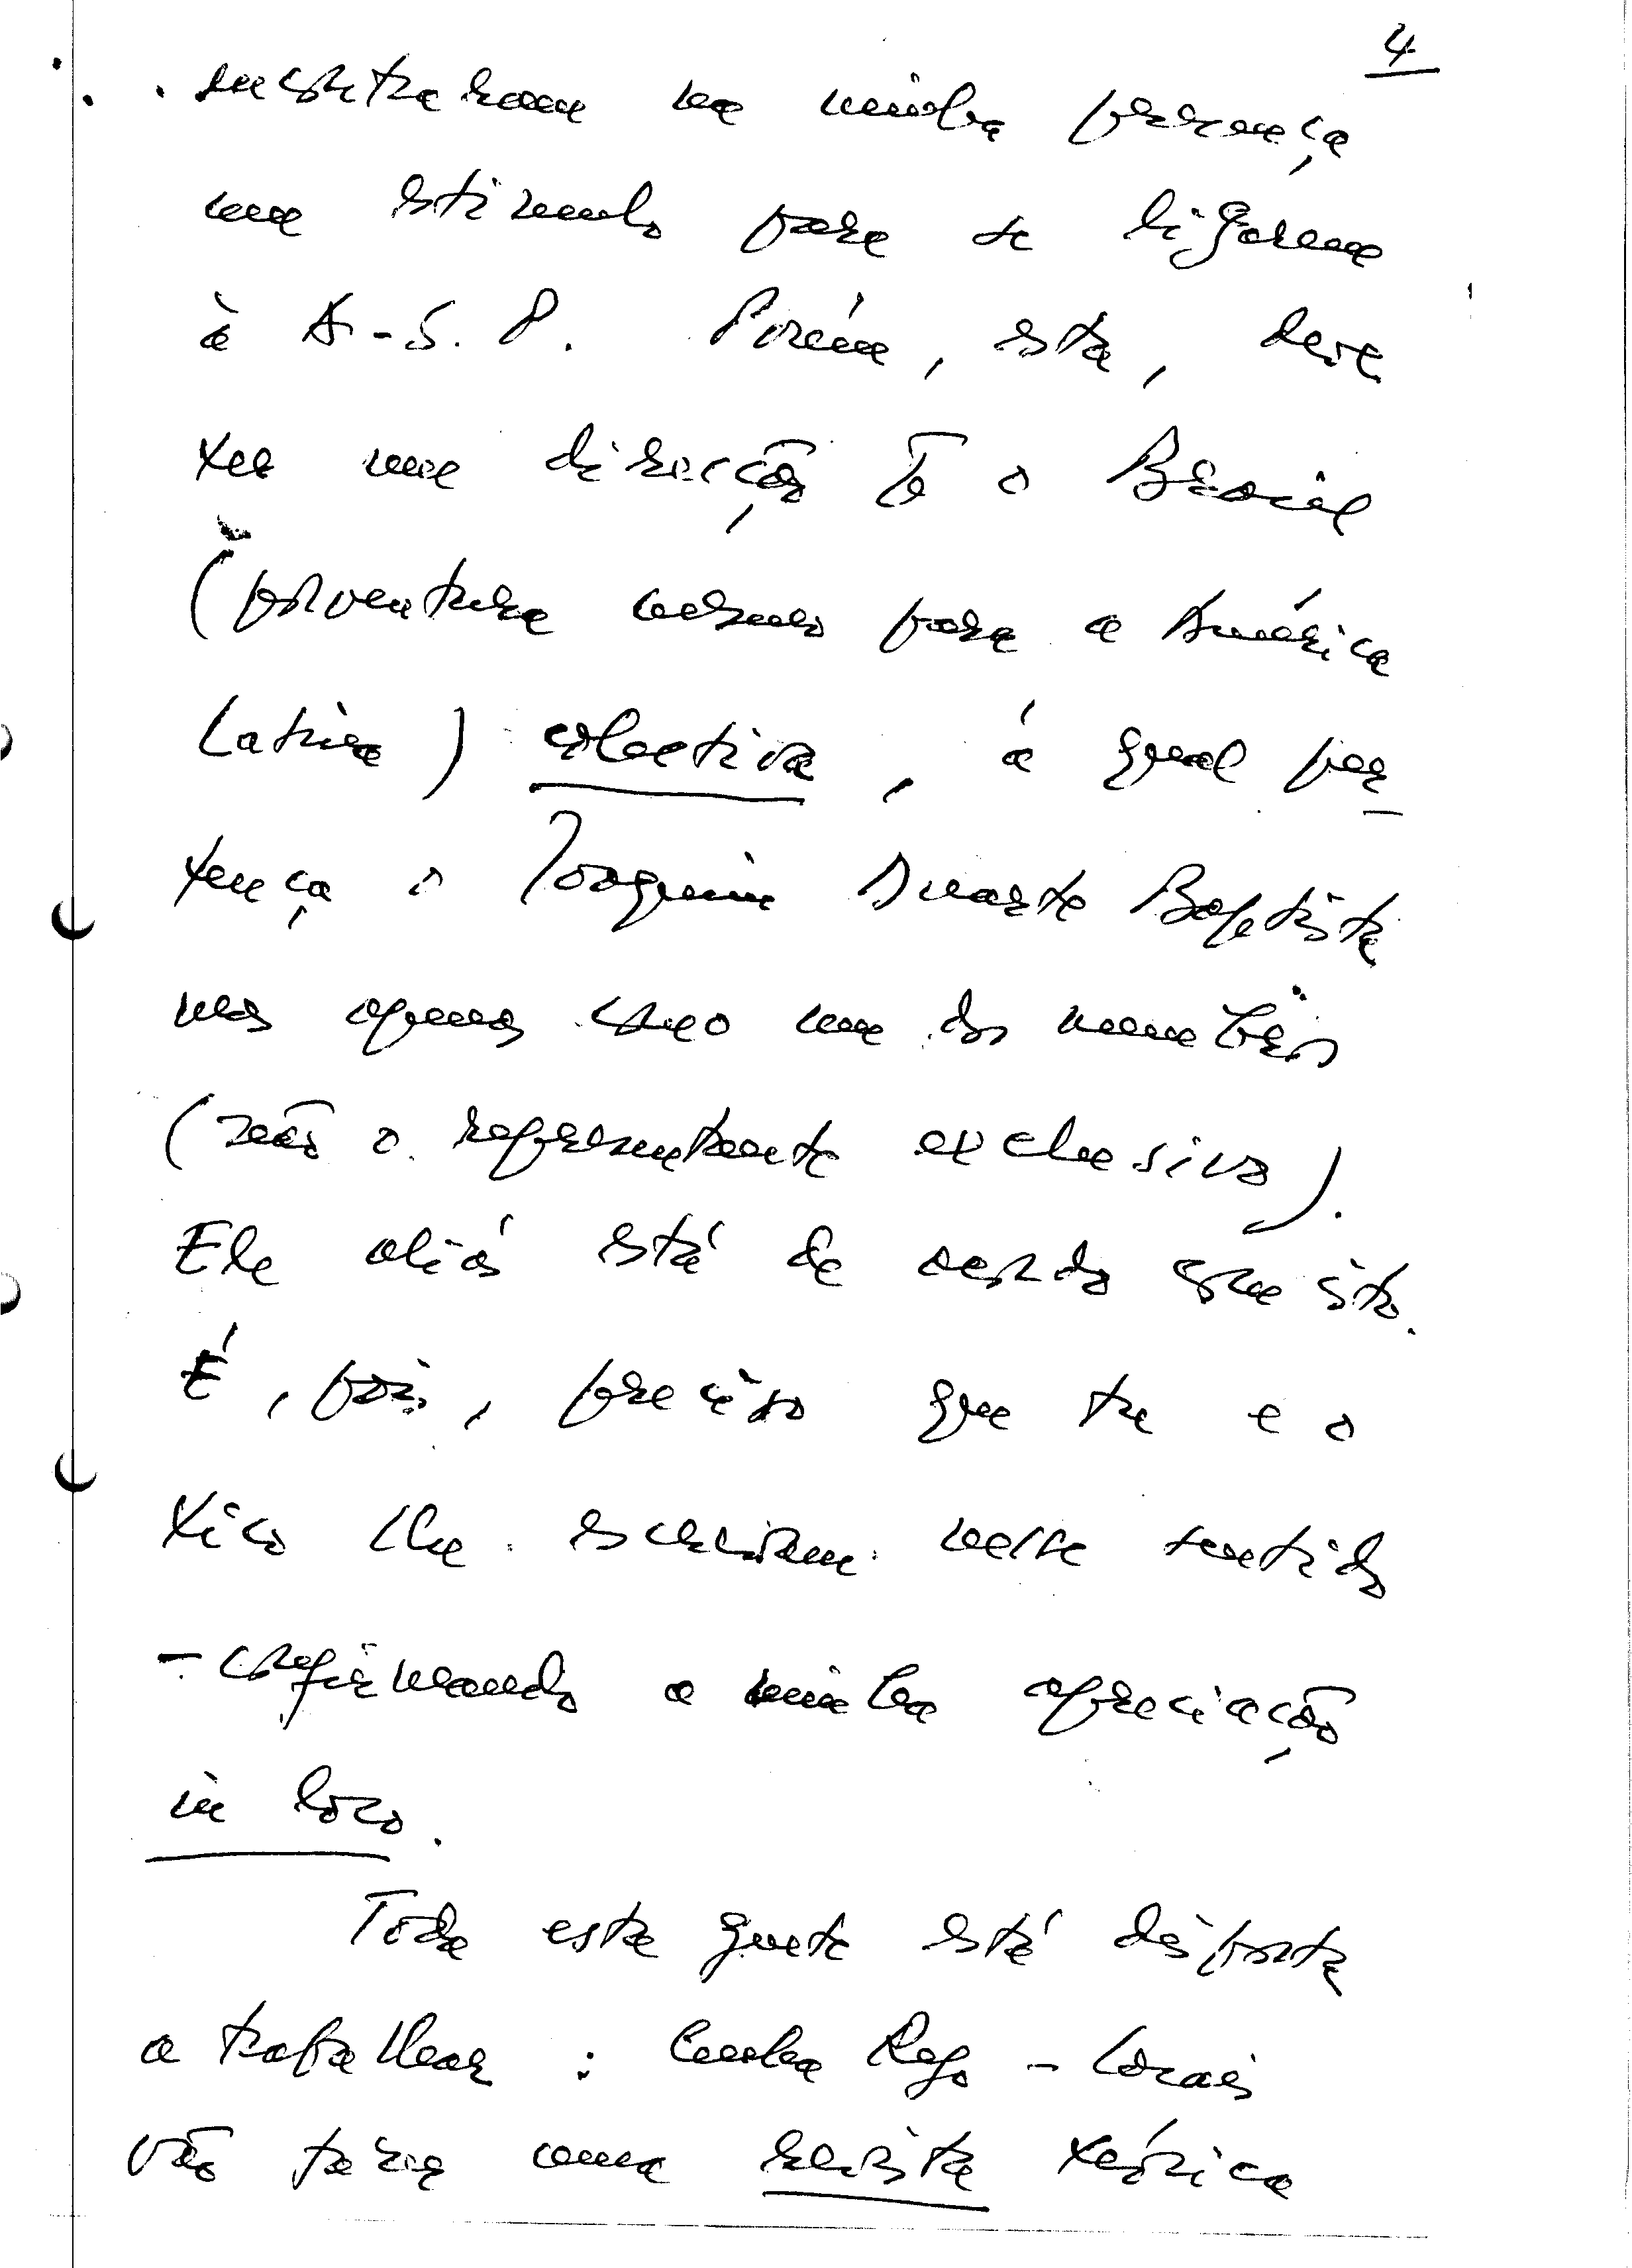 4
encontraram na minha presença
um estimulo para se ligarem
à A-S.P. Porém, esta, deve
ter uma direcção p.ª o Brasil
(porventura mesmo para a América
Latina) colectiva, á qual per-
tença o Joaquim Duarte Baptista
mas apenas como um dos membros
(não o representante exclusivo).
Ele aliás está de acordo com isto.
É, pois, preciso que tu e o
Xico lhe escrevam nesse sentido
- confirmando a minha apreciação
in loco.
Toda esta gente está disposta
a trabalhar: Cunha Rego - Morais
vão fazer uma revista teórica